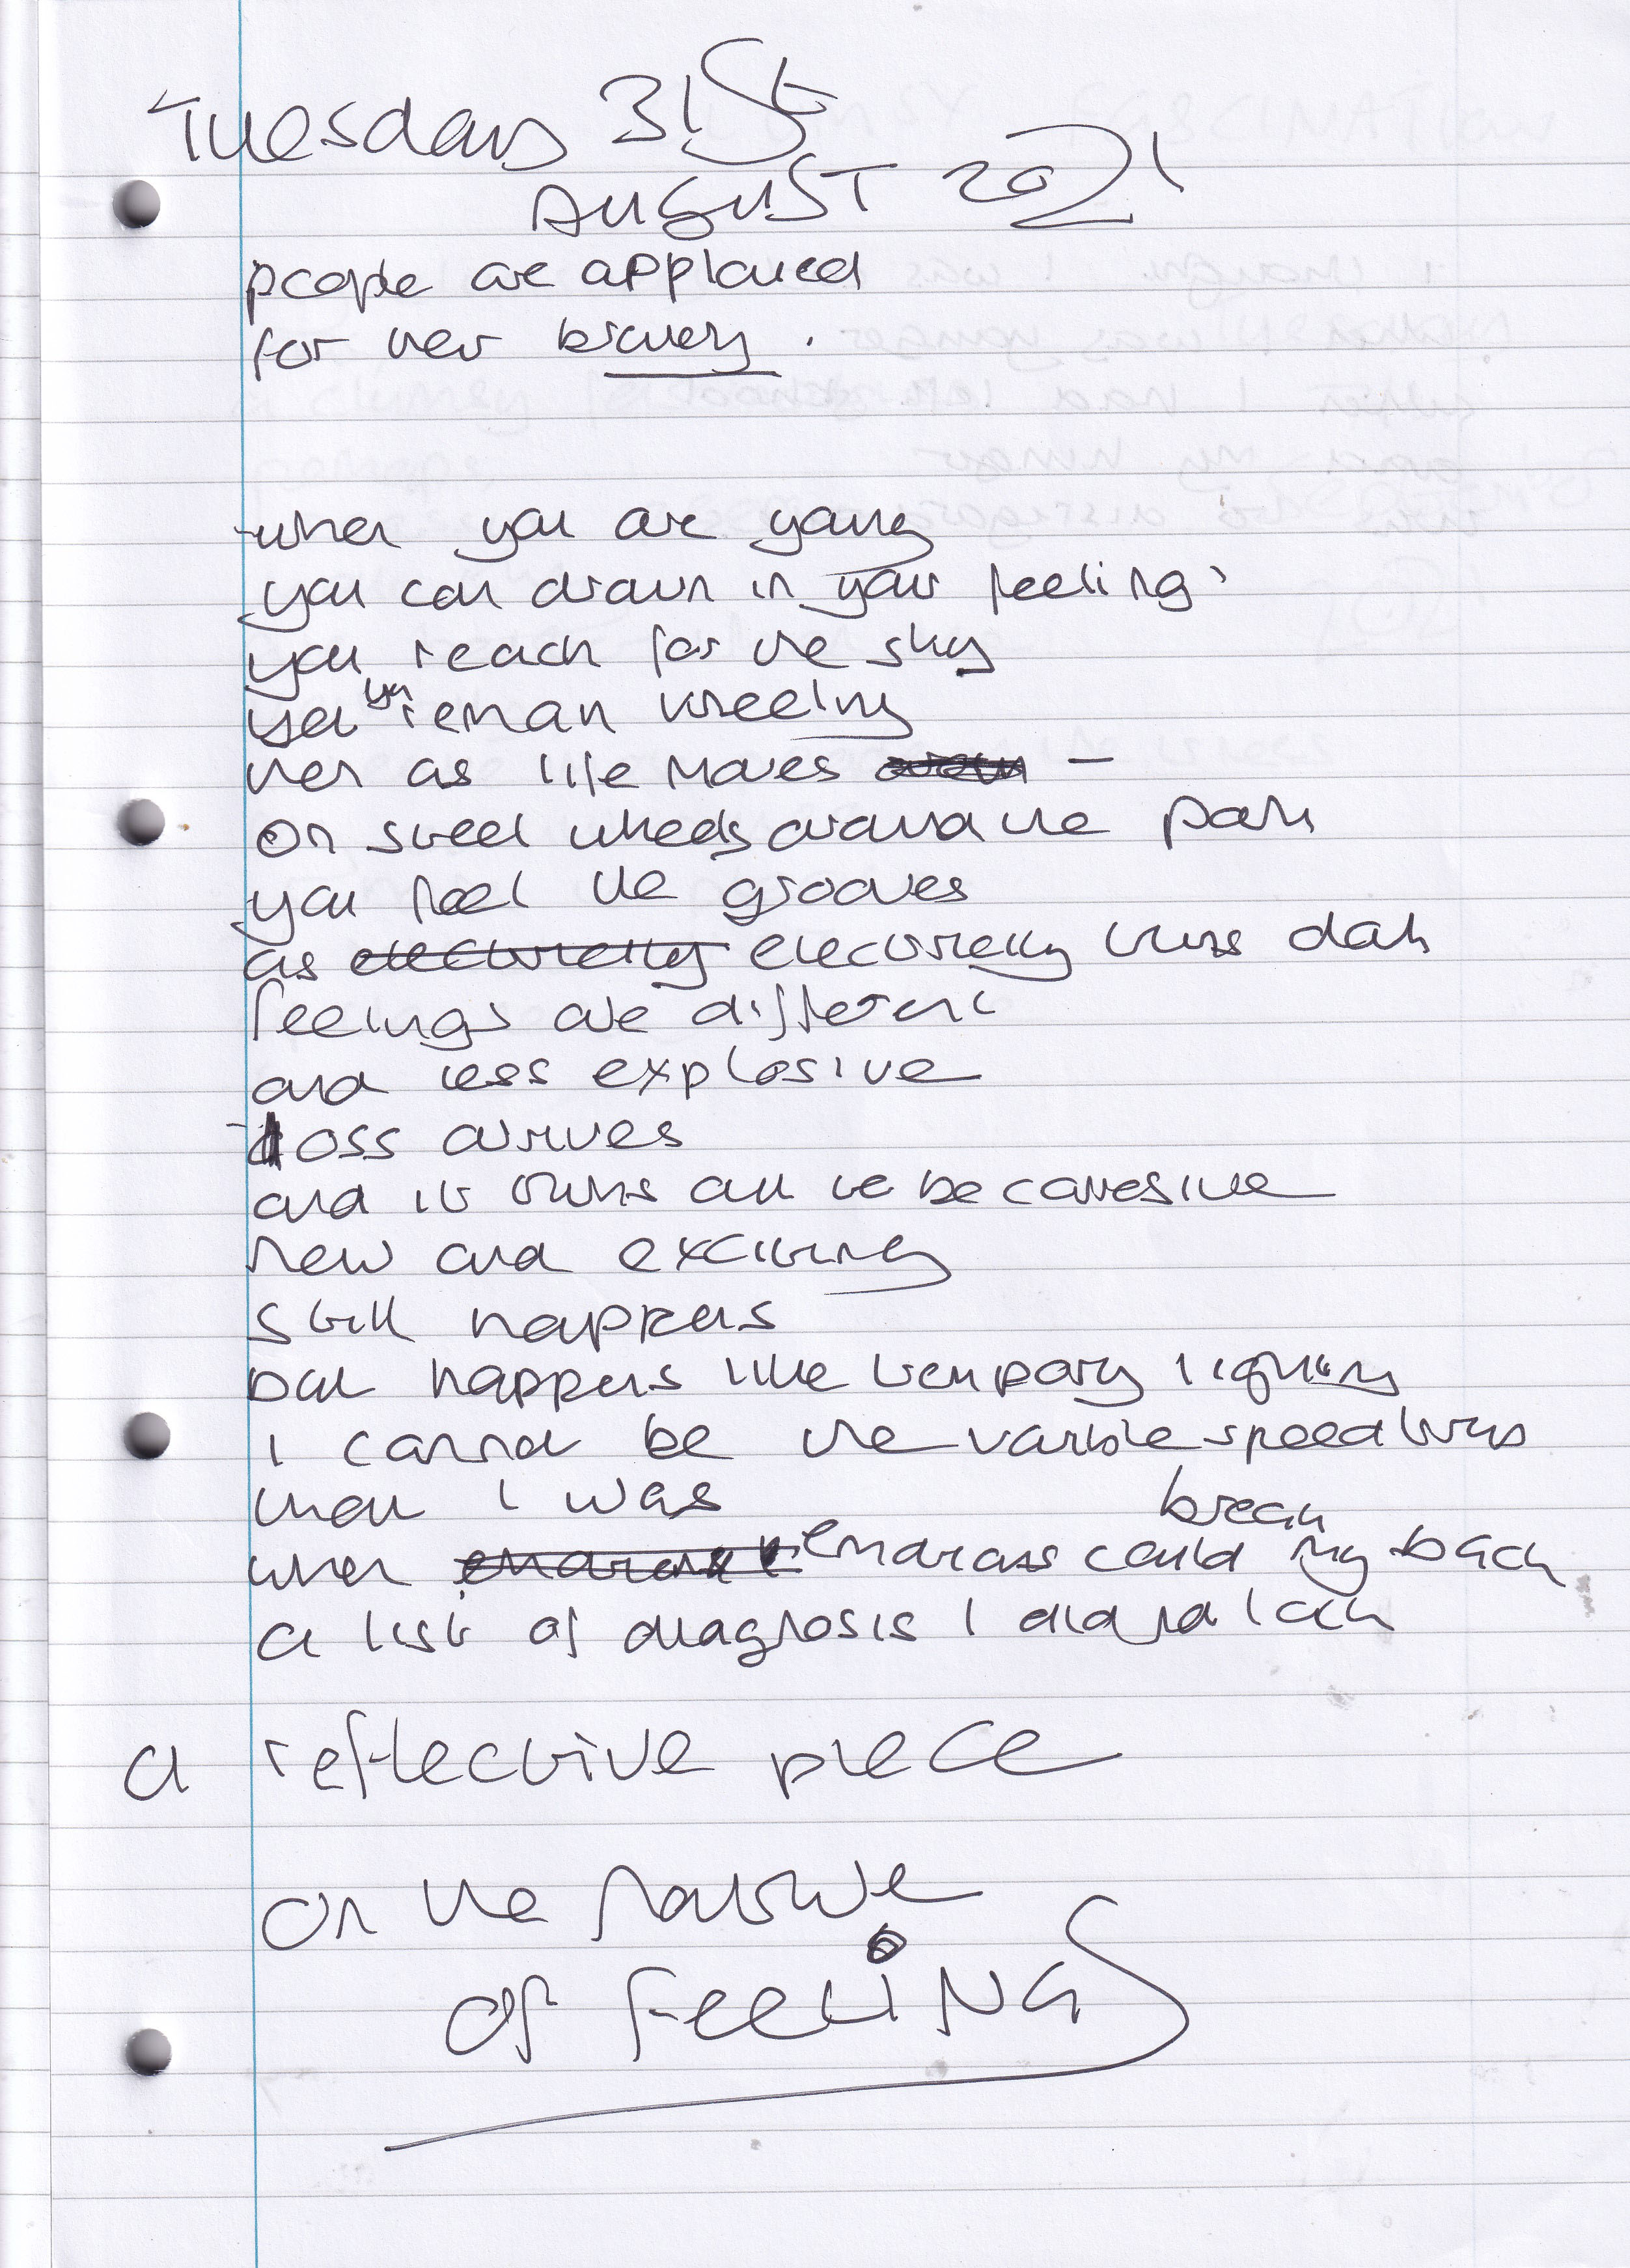 Tuesday 31st
August 2021
people are applaued
for their bravery.
when you are young
you can drown in your feeling
you reach for the sky
yet you remain kneeling
then as life moves —
on steel wheels around the park
you feel the grooves
as electricity electricity turns dark
feelings are different
and less explosive
loss arrives
and it turns out to be corrosive
new and exciting
still happens
but happens like tempory lighting
I cannot be the varible speed
that I was
when embarass could break my back
a list of diagnosis I did not lack
a reflective piece
on the nature
of FEELiNGS